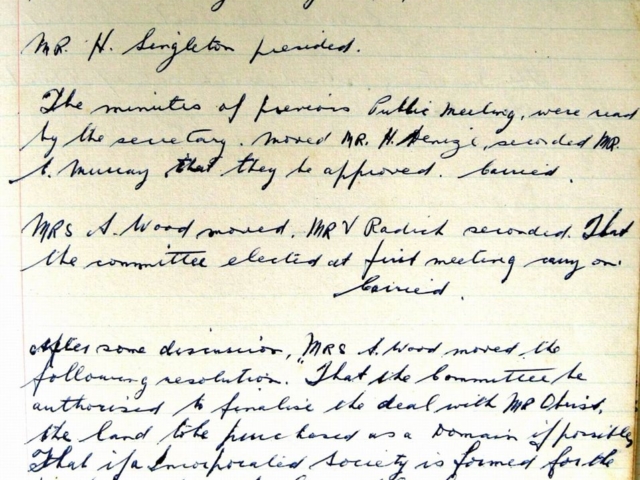 MR. H. Singleton presided.
The minutes of previous Public Meeting, were read
by the secretary. Moved MR. H. Henizi, seconded MR.
E. Murray that they be approved. Carried.
MRS A. Wood moved. MR V Radich seconded. That
the committee elected at first meeting carry on.
Carried.
After some discussion, "MRS A. Wood moved the
following resolution. "That the Committee be
authorised to finalise the deal with MR Obrist,
the land to be purchased as a Domain if possible
That if a Incorporated Society is formed for the